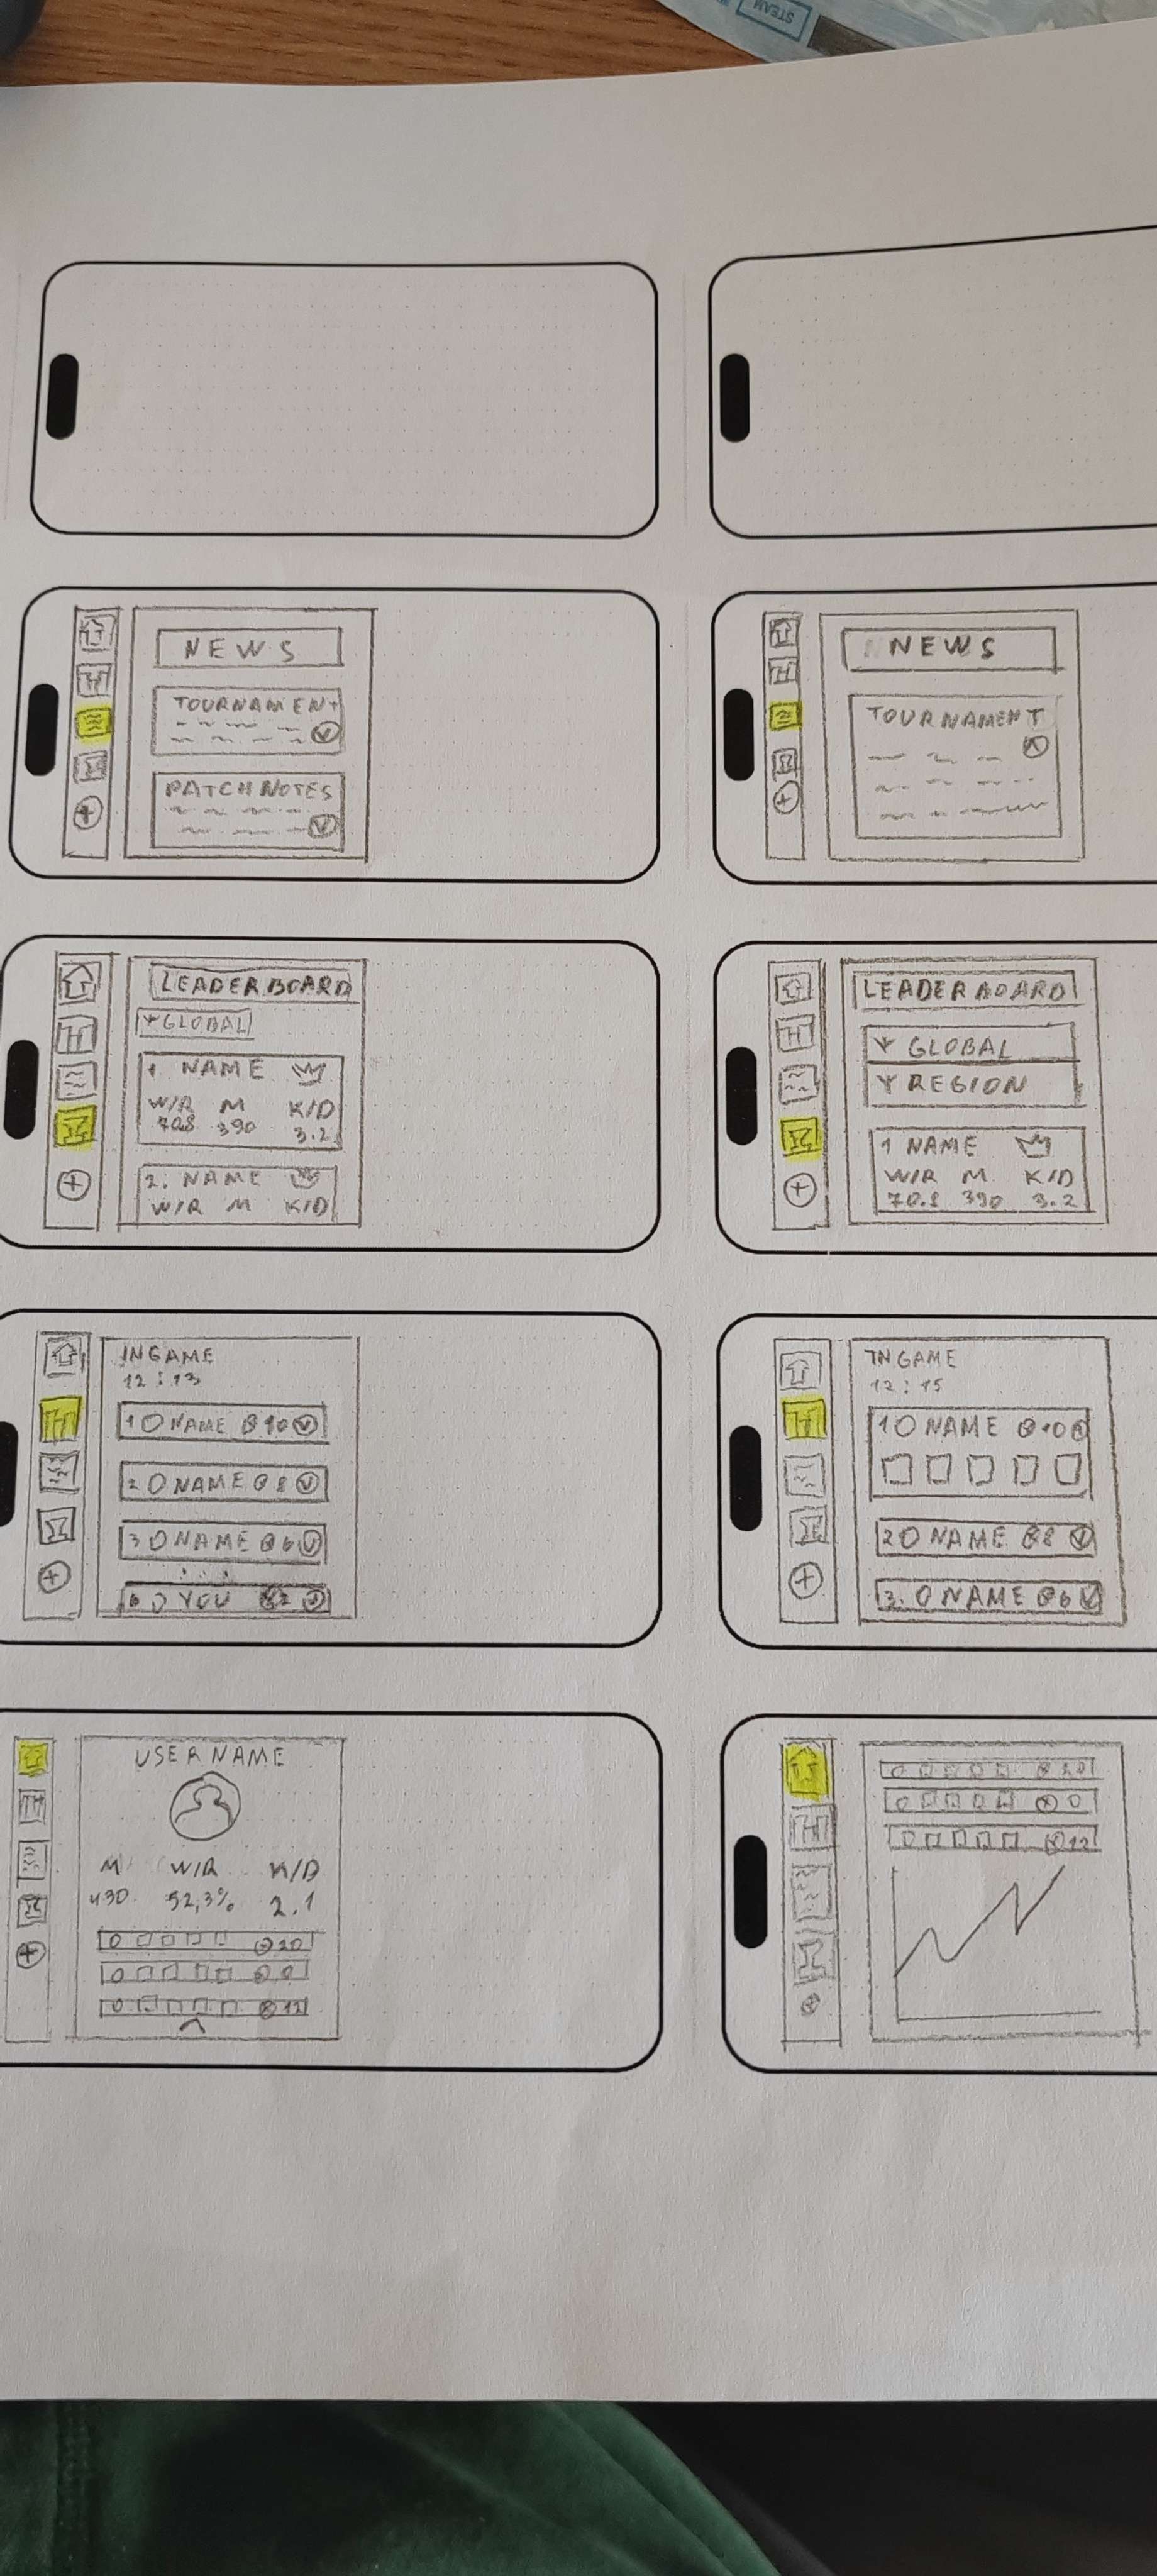 STEAM
NEWS
TOURNAMENT
PATCH NOTES
NEWS
TOURNAMENT
LEADERBOARD
GLOBAL
1 NAME
W/R M K/D
70.8 390 3.2
2. NAME
W/R M K/D
LEADERBOARD
GLOBAL
REGION
1 NAME
W/R M K/D
70.8 390 3.2
INGAME
12:13
1 NAME 10
2 NAME 8
3 NAME 6
YOU
INGAME
12:15
1 NAME 10
2 NAME 8
3. NAME 6
USERNAME
M W/R K/D
430 52,3% 2.1
20
0
12
0
12